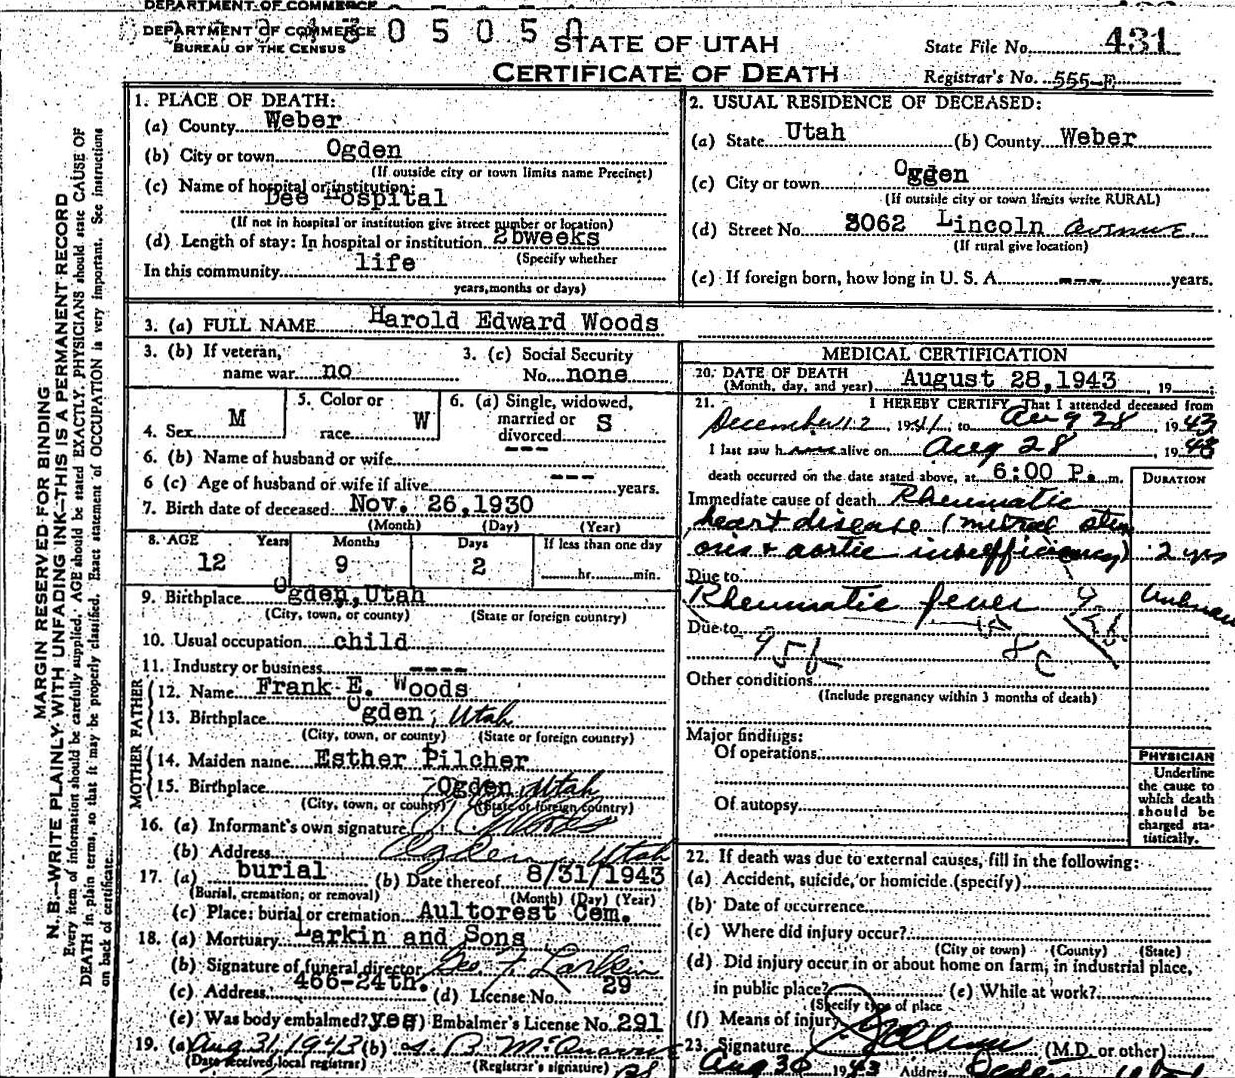 DEPARTMENT OF COMMERCE
DEPARTMENT OF COMMERCE
BUREAU OF THE CENSUS
4305050
STATE OF UTAH
CERTIFICATE OF DEATH
State File No. 431
Registrar's No. 555-F
MARGIN RESERVED FOR BINDING
N.B.—WRITE PLAINLY WITH UNFADING INK—THIS IS A PERMANENT RECORD
Every item of information should be carefully supplied. AGE should be stated EXACTLY. PHYSICIANS should state CAUSE OF
DEATH in plain terms, so that it may be properly classified. Exact statement of OCCUPATION is very important. See instructions
on back of certificate.
1. PLACE OF DEATH:
(a) County Weber
(b) City or town Ogden
(If outside city or town limits name Precinct)
(c) Name of hospital or institution:
Dee Hospital
(If not in hospital or institution give street number or location)
(d) Length of stay: In hospital or institution 2 weeks
(Specify whether
In this community life
years, months or days)
2. USUAL RESIDENCE OF DECEASED:
(a) State Utah (b) County Weber
(c) City or town Ogden
(If outside city or town limits write RURAL)
(d) Street No. 3062 Lincoln avenue
(If rural give location)
(e) If foreign born, how long in U. S. A. --- years.
3. (a) FULL NAME Harold Edward Woods
3. (b) If veteran, name war no
3. (c) Social Security No. none
4. Sex M
5. Color or race W
6. (a) Single, widowed, married or divorced S
6. (b) Name of husband or wife ---
6 (c) Age of husband or wife if alive --- years.
7. Birth date of deceased Nov. 26, 1930
(Month) (Day) (Year)
8. AGE Years Months Days If less than one day
12 9 2 hr. min.
9. Birthplace Ogden, Utah
(City, town, or county) (State or foreign country)
10. Usual occupation child
11. Industry or business ----
FATHER
12. Name Frank E. Woods
13. Birthplace Ogden, Utah
(City, town, or county) (State or foreign country)
MOTHER
14. Maiden name Esther Pilcher
15. Birthplace Ogden Utah
(City, town, or county) (State or foreign country)
16. (a) Informant's own signature Woods
(b) Address Ogden, Utah
17. (a) burial (b) Date thereof 8/31/1943
(Burial, cremation, or removal) (Month) (Day) (Year)
(c) Place: burial or cremation Aultorest Cem.
18. (a) Mortuary Larkin and Sons
(b) Signature of funeral director Geo. F. Larkin
(c) Address 466-24th. (d) License No. 29
(e) Was body embalmed? yes Embalmer's License No. 291
19. (a) Aug 31, 1943 (b)
(Date received local registrar) (Registrar's signature)
MEDICAL CERTIFICATION
20. DATE OF DEATH
(Month, day, and year) August 28, 1943, 19
21. I HEREBY CERTIFY, That I attended deceased from
December 12, 1941, to Aug 28, 1943
I last saw h alive on Aug 28, 1943
death occurred on the date stated above, at 6:00 P. m. DURATION
Immediate cause of death Rheumatic
heart disease (mitral sten
osis + aortic insufficiency) 2 yrs
Due to
Rheumatic fever
Due to
95b
Other conditions
(Include pregnancy within 3 months of death)
Major findings:
Of operations
Of autopsy
PHYSICIAN
Underline
the cause to
which death
should be
charged sta-
tistically.
22. If death was due to external causes, fill in the following:
(a) Accident, suicide, or homicide (specify)
(b) Date of occurrence
(c) Where did injury occur?
(City or town) (County) (State)
(d) Did injury occur in or about home on farm, in industrial place,
in public place? (e) While at work?
(Specify type of place
(f) Means of injury
23. Signature (M.D. or other)
Aug 30 1943 Address Ogden Utah